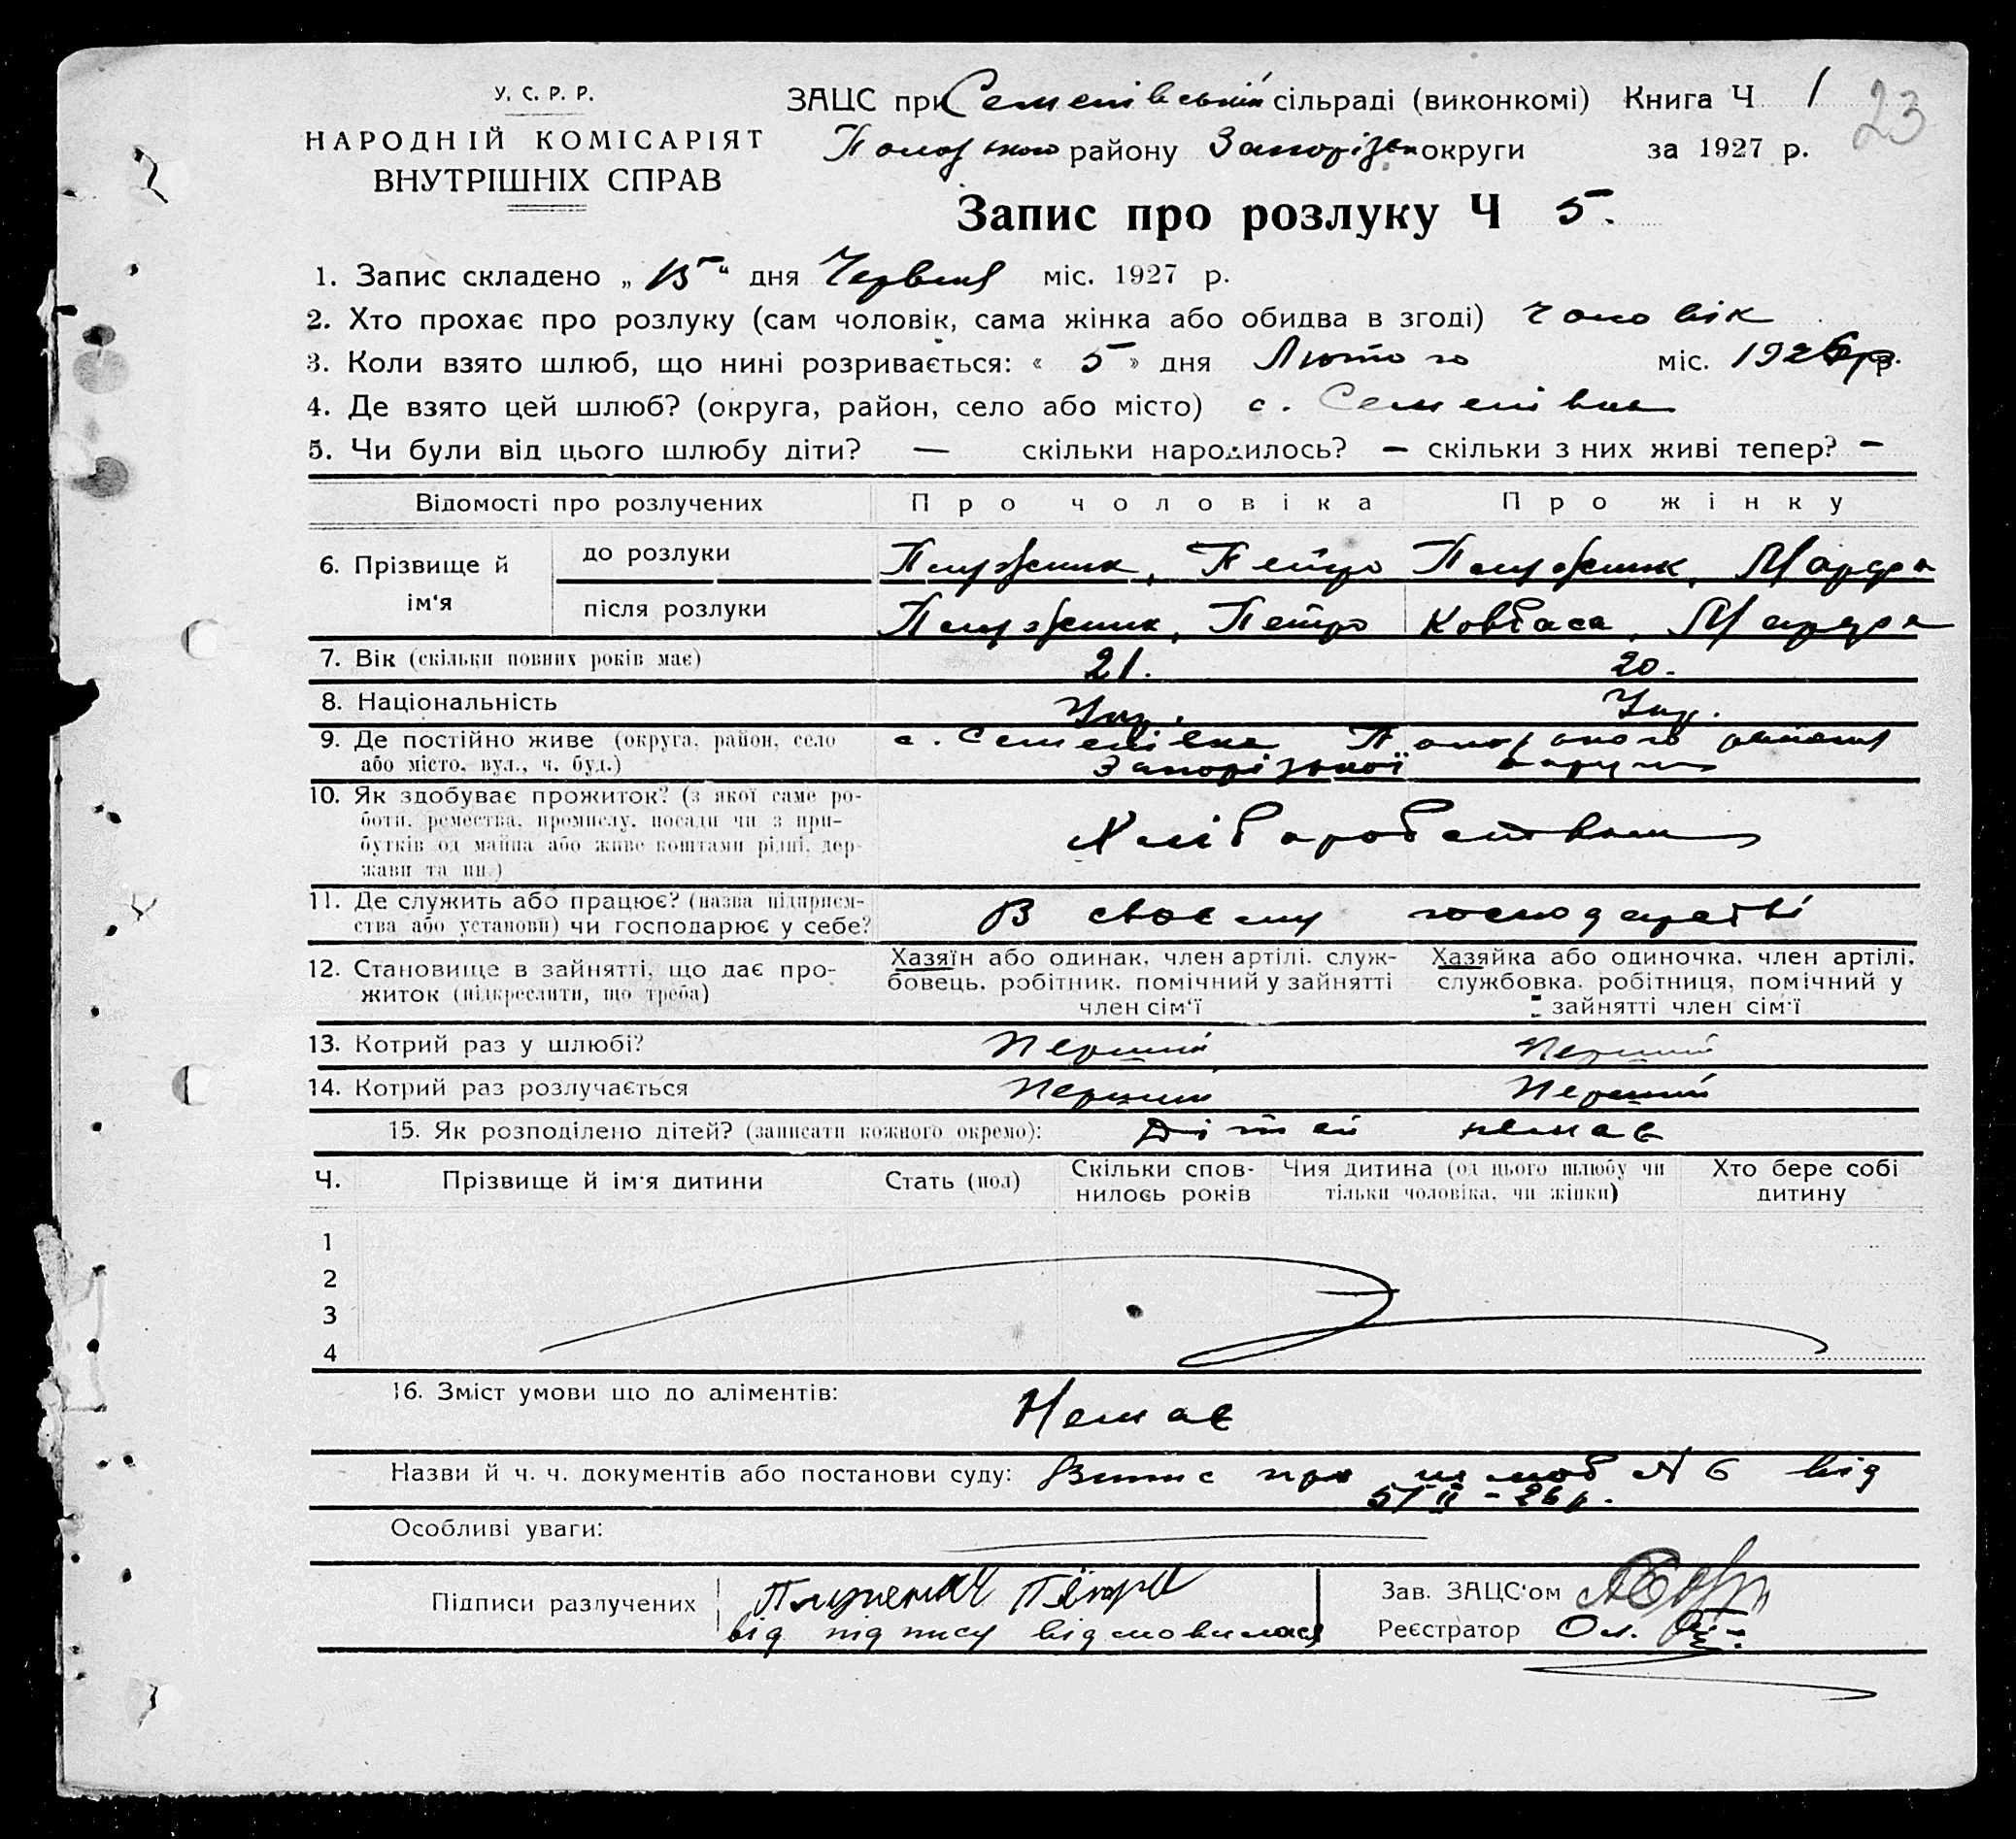 У. С. Р. Р.
НАРОДНІЙ КОМІСАРІЯТ
ВНУТРІШНІХ СПРАВ
ЗАЦС при Семенівській сільраді (виконкомі) Книга Ч 1
23
Пологського району Запорізьк округи за 1927 р.
Запис про розлуку Ч 5.
1. Запис складено „ 15 “ дня Червня міс. 1927 р.
2. Хто прохає про розлуку (сам чоловік, сама жінка або обидва в згоді) чоловік
3. Коли взято шлюб, що нині розривається: « 5 » дня Лютого міс. 1926 р.
4. Де взято цей шлюб? (округа, район, село або місто) с. Семенівка
5. Чи були від цього шлюбу діти? — скільки народилось? — скільки з них живі тепер? —
Відомості про розлучених Про чоловіка Про жінку
6. Прізвище й ім‘я
до розлуки Плужник, Петро Плужник, Марфа
після розлуки Плужник, Петро Ковбаса, Марфа
7. Вік (скільки повних років має) 21. 20.
8. Національність Укр. Укр.
9. Де постійно живе (округа, район, село с. Семенівка Пологського району
або місто, вул., ч. буд.) Запорізької округи
10. Як здобуває прожиток? (з якої саме ро-
боти, ремества, промислу, посади чи з при-
бутків од майна або живе коштами рідні, дер-
жави та ин.)
Хліборобством
11. Де служить або працює? (назва підприєм-
ства або установи) чи господарює у себе?
В своєму господарстві
12. Становище в зайнятті, що дає про-
житок (підкреслити, що треба)
Хазяїн або одинак, член артілі, служ-
бовець, робітник, помічний у зайнятті
член сім‘ї
Хазяйка або одиночка, член артілі,
службовка, робітниця, помічний у
зайнятті член сім‘ї
13. Котрий раз у шлюбі? Перший Перший
14. Котрий раз розлучається Перший Перший
15. Як розподілено дітей? (записати кожного окремо): Дітей немає
Ч. Прізвище й ім‘я дитини Стать (пол) Скільки спов-нилось років Чия дитина (од цього шлюбу чи тільки чоловіка, чи жінки) Хто бере собі дитину
1
2
3
4
16. Зміст умови що до аліментів: Немає
Назви й ч. ч. документів або постанови суду: Витис про шлюб № 6 від
5/II – 26 р.
Особливі уваги:
Підписи разлучених Плужник Петро
від підпису відмовилася
Зав. ЗАЦС‘ом
Реєстратор Ол.